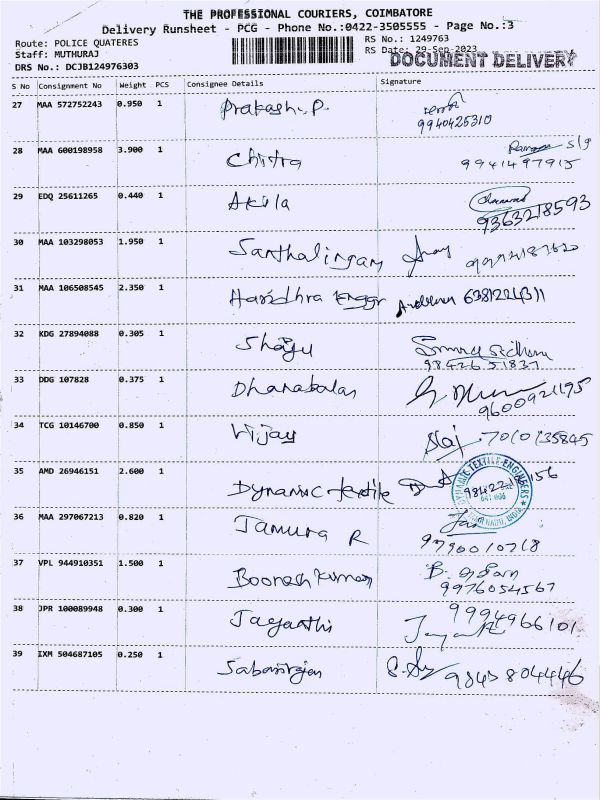 THE PROFESSIONAL COURIERS, COIMBATORE
Delivery Runsheet - PCG - Phone No.:0422-3505555 - Page No.:3
Route: POLICE QUATERES RS No.: 1249763
Staff: MUTHURAJ RS Date: 29-Sep-2023
DRS No.: DCJB124976303 DOCUMENT DELIVERY
S No Consignment No Weight PCS Consignee Details Signature
27 MAA 572752243 0.950 1 Prakash. P.
9940425310
28 MAA 600198958 3.900 1 Chitra
9941497915
29 EDQ 25611265 0.440 1 Akila
9363218593
30 MAA 103298053 1.950 1 Santhalingam
31 MAA 106508545 2.350 1 6381224311
32 KDG 27894088 0.305 1 Shaju
9842651837
33 DDG 107828 0.375 1 Dhanabalan
9600921195
34 TCG 10146700 0.850 1 Vijay 7010135845
35 AMD 26946151 2.600 1 Dynamic textile
DYNAMIC TEXTILE ENGINEERS
36 MAA 297067213 0.820 1 Jamuna R
9790010718
37 VPL 944910351 1.500 1 Boonesh Kumar
9976054567
38 JPR 100089948 0.300 1 Jayanthi 9994966101
39 IXM 504687105 0.250 1 Sabarirajan 9843804446